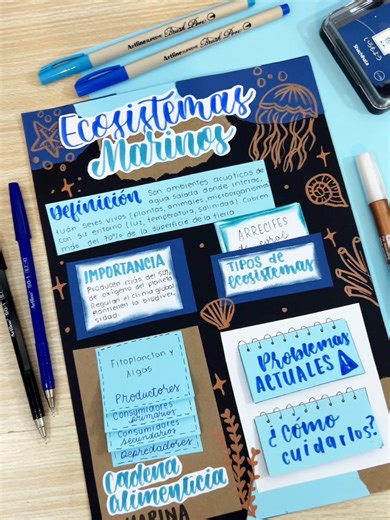 Artline SUPREME Brush Pen
Artline SUPREME Brush Pen
Ecosistemas
Marinos
Definición Son ambientes acuáticos de
agua salada donde interac-
túan seres vivos (plantas, animales, microorganismos)
con su entorno (luz, temperatura, salinidad). Cubren
más del 70% de la superficie de la tierra
ARRECIFES
de coral
IMPORTANCIA
Producen más del 50%
de oxígeno del planeta
Regulan el clima global
Mantienen la biodiver-
sidad
TIPOS de
ecosistemas
Fitoplancton y
Algas
Productores
Consumidores
primarios
Consumidores
secundarios
Depredadores
Cadena
alimenticia
MARINA
Problemas
ACTUALES
¿Cómo
cuidarlos?